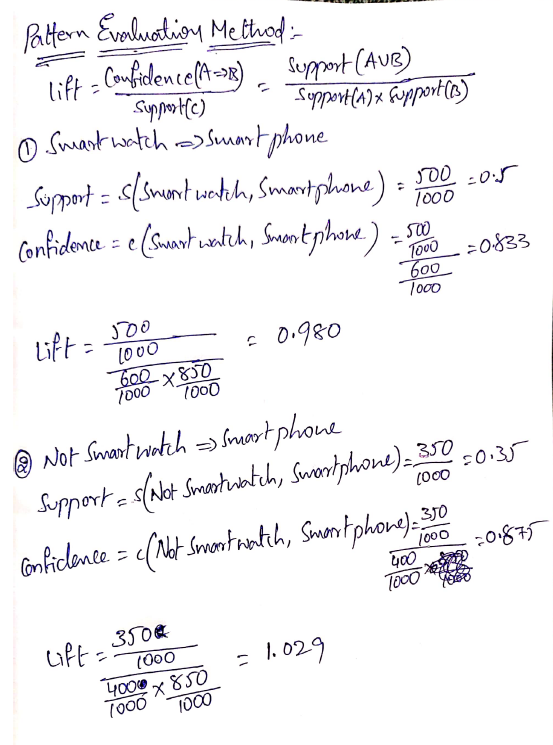 Pattern Evaluation Method :-
lift = Confidence(A=>B) / Support(C) = Support(AUB) / Support(A) x Support(B)
① Smartwatch => Smartphone
Support = s(Smartwatch, Smartphone) = 500/1000 = 0.5
Confidence = c(Smartwatch, Smartphone) = 500/1000 / 600/1000 = 0.833
Lift = 500/1000 / 600/1000 x 850/1000 = 0.980
② Not Smartwatch => Smartphone
Support = s(Not Smartwatch, Smartphone) = 350/1000 = 0.35
Confidence = c(Not Smartwatch, Smartphone) = 350/1000 / 400/1000 = 0.875
Lift = 350/1000 / 400/1000 x 850/1000 = 1.029